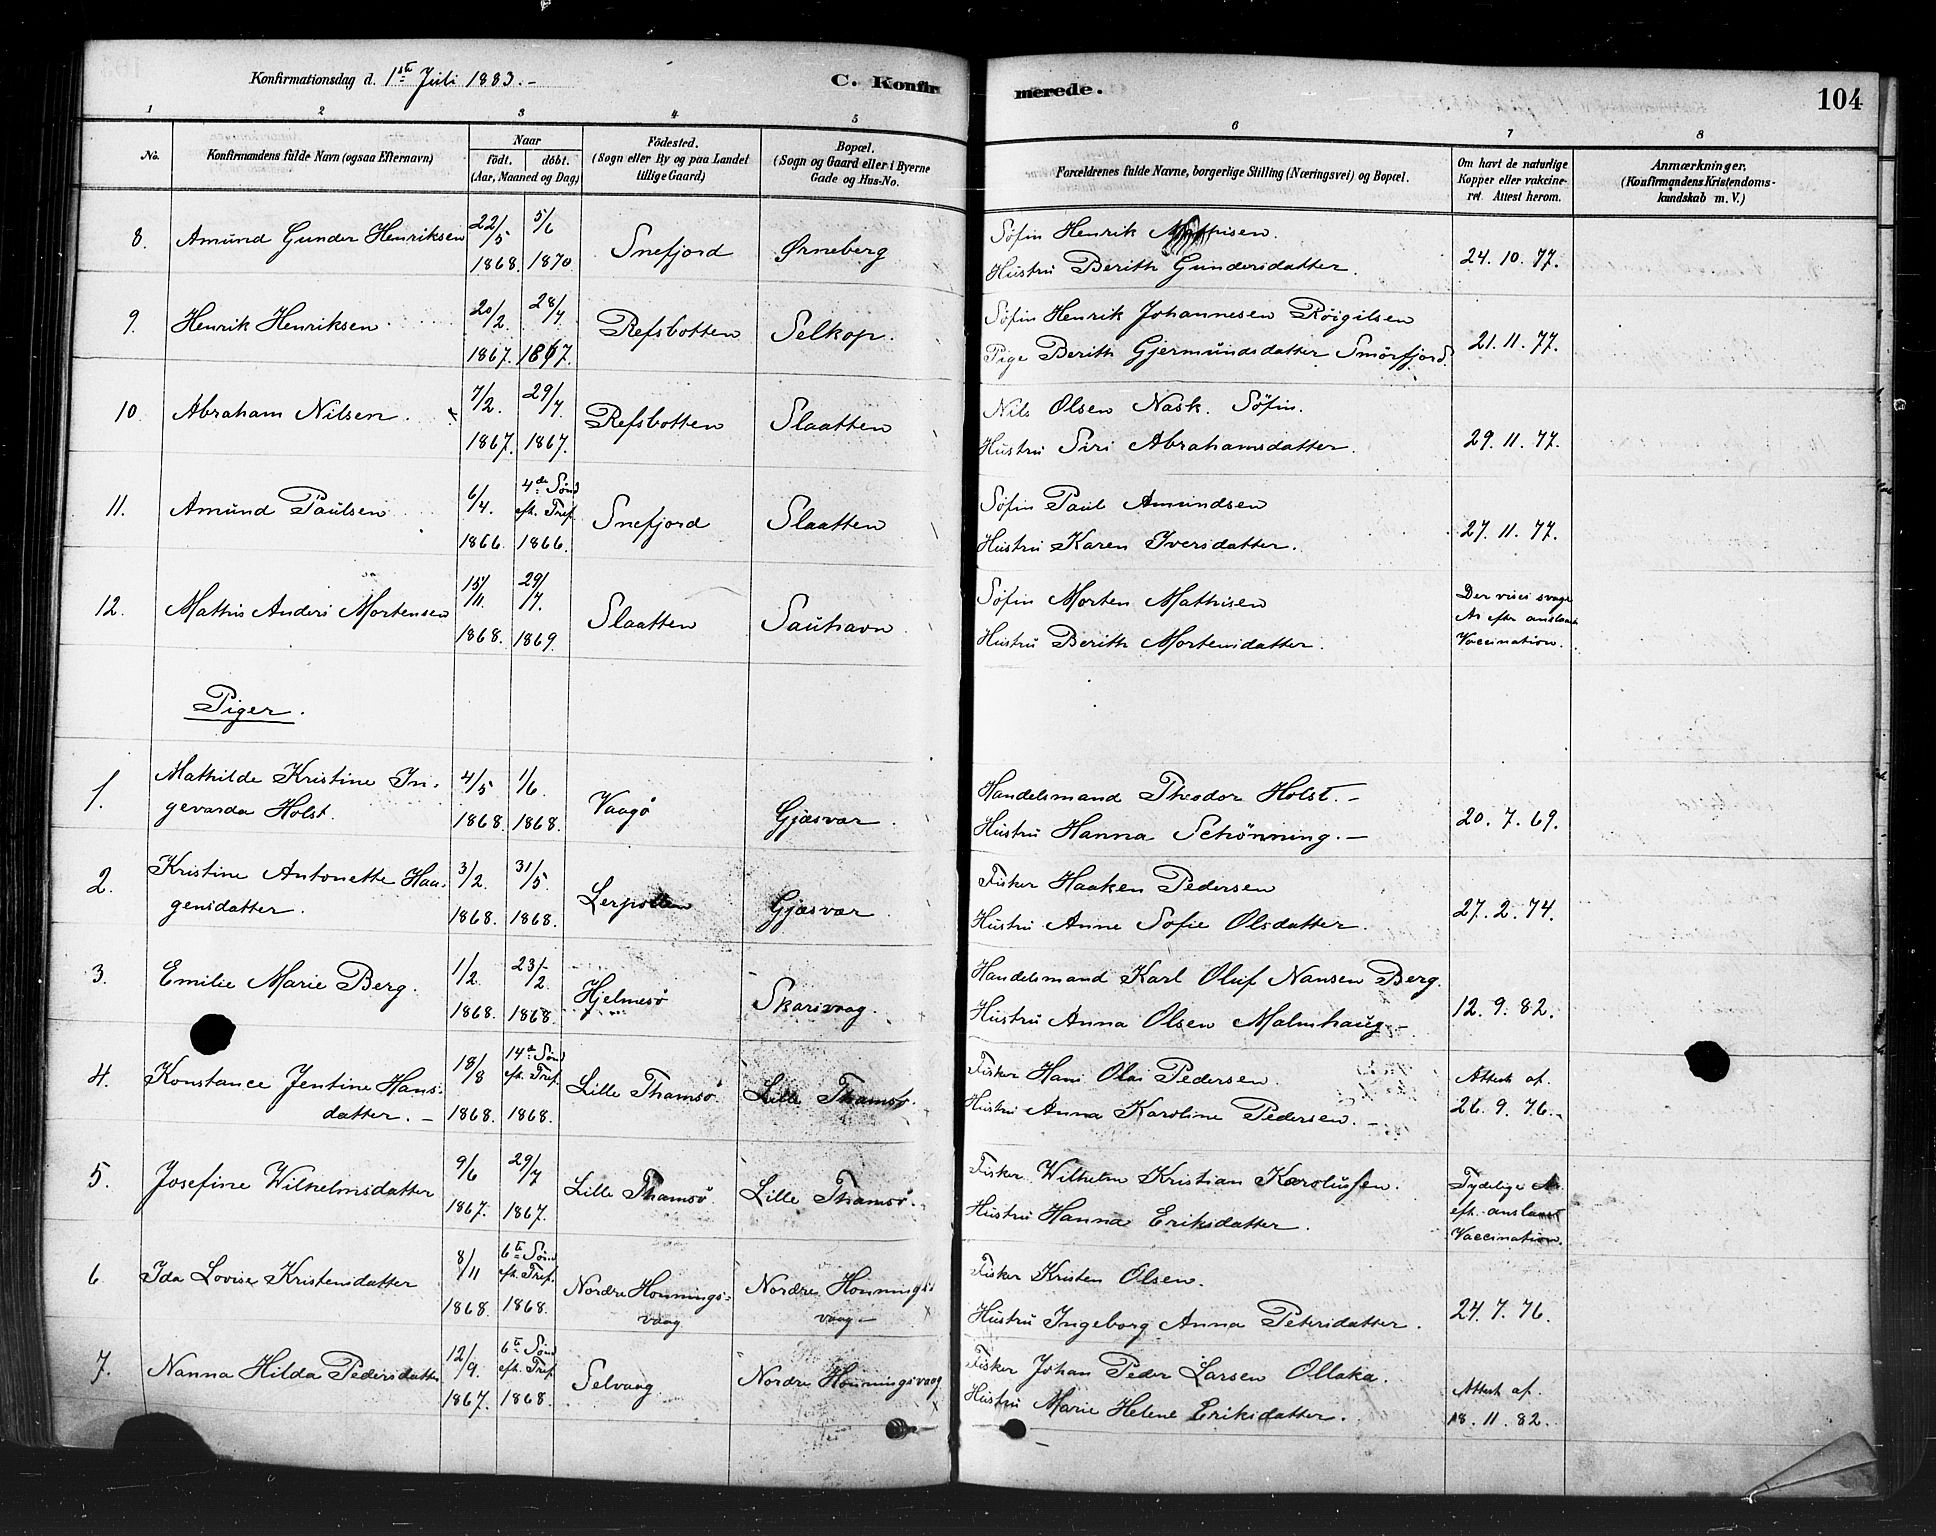 Konfirmationsdag d. 1ste Juli 1883. -
C. Konfirmerede.
104
1 2 3 4 5 6 7 8
No.
Konfirmandens fulde Navn (ogsaa Efternavn)
Naar
födt. döbt.
(Aar, Maaned og Dag)
Födested.
(Sogn eller By og paa Landet
tillige Gaard)
Bopæl.
(Sogn og Gaard eller i Byerne
Gade og Hus-No.
Forældrenes fulde Navne, borgerlige Stilling (Næringsvei) og Bopæl.
Om havt de naturlige
Kopper eller vakcine-
ret. Attest herom.
Anmærkninger,
(Konfirmandens Kristendoms-
kundskab m. V.)
8. Amund Gunder Henriksen 22/5 1868. 5/6 1870 Snefjord Ørneberg
Söfin Henrik Mathisen.
Hustru Berith Gundersdatter. 24. 10. 77.
9. Henrik Henriksen. 20/2. 1867. 28/7 1867. Refsbotten Selkop.
Söfin Henrik Johannesen Röigilsen
Pige Berith Gjermundsdatter Smörfjord. 21. 11. 77.
10. Abraham Nilsen. 7/2. 1867. 29/7. 1867. Refsbotten Slaatten
Nils Olsen Nask. Söfin.
Hustru Siri Abrahamsdatter. 29. 11. 77.
11. Amund Paulsen 6/4. 1866. 4de Sönd. eft. Tref. 1866. Snefjord Slaatten
Söfin Paul Amundsen
Hustru Karen Iversdatter. 27. 11. 77.
12. Mathis Anders Mortensen 15/11. 1868. 29/7. 1869 Slaatten Sauhavn.
Söfin Morten Mathisen
Hustru Berith Mortensdatter.
Der vises svage
Ar efter anslaaet
Vaccination.
Piger.
1. Mathilde Kristine In-
gevarda Holst. 4/5 1868. 1/6. 1868. Vaagö Gjæsvær.
Handelsmand Theodor Holst. -
Hustru Hanna Schönning. - 20. 7. 69.
2. Kristine Antonette Haa-
gensdatter. 3/2. 1868. 31/5. 1868. Lerpollen Gjæsvær.
Fisker Haaken Pedersen
Hustru Anne Sofie Olsdatter. 27. 2. 74.
3. Emilie Marie Berg. 1/2. 1868. 23/2 1868. Hjelmesö Skarsvaag.
Handelsmand Karl Oluf Nansen Berg.
Hustru Anna Olsen Malmhaug - 12. 9. 82.
4. Konstance Jentine Hans-
datter. - 18/8 1868. 14de Sönd eft. Tref. 1868. Lille Thamsö Lille Thamsö.
Fisker Hans Olai Pedersen.
Hustru Anna Karoline Pedersen. -
Attest af.
26. 9. 76. -
5. Josefine Wilhelmsdatter 9/6 1867. 29/7 1867. Lille Thamsö. Lille Thamsö.
Fisker Wilhelm Kristian Karolussen.
Hustru Hanna Eriksdatter.
Tydelige Ar
eft. anslaaet
Vaccination.
6 Ida Lovise Kristensdatter 8/11 1868. 6te Sönd eft. Tref. 1868. Nordre Honnings-
vaag. Nordre Honnings-
vaag -
Fisker Kristen Olsen.
Hustru Ingeborg Anna Petersdatter. 24. 7. 76.
7. Nanna Hilda Pedersdatter 12/9. 1867. 6te Sönd eft. Tref. 1868. Selvaag. Nordre Honningsvaag
Fisker Johan Peder Larsen Ollaka.
Hustru Marie Helene Eriksdatter.
Attest af.
18. 11. 82.